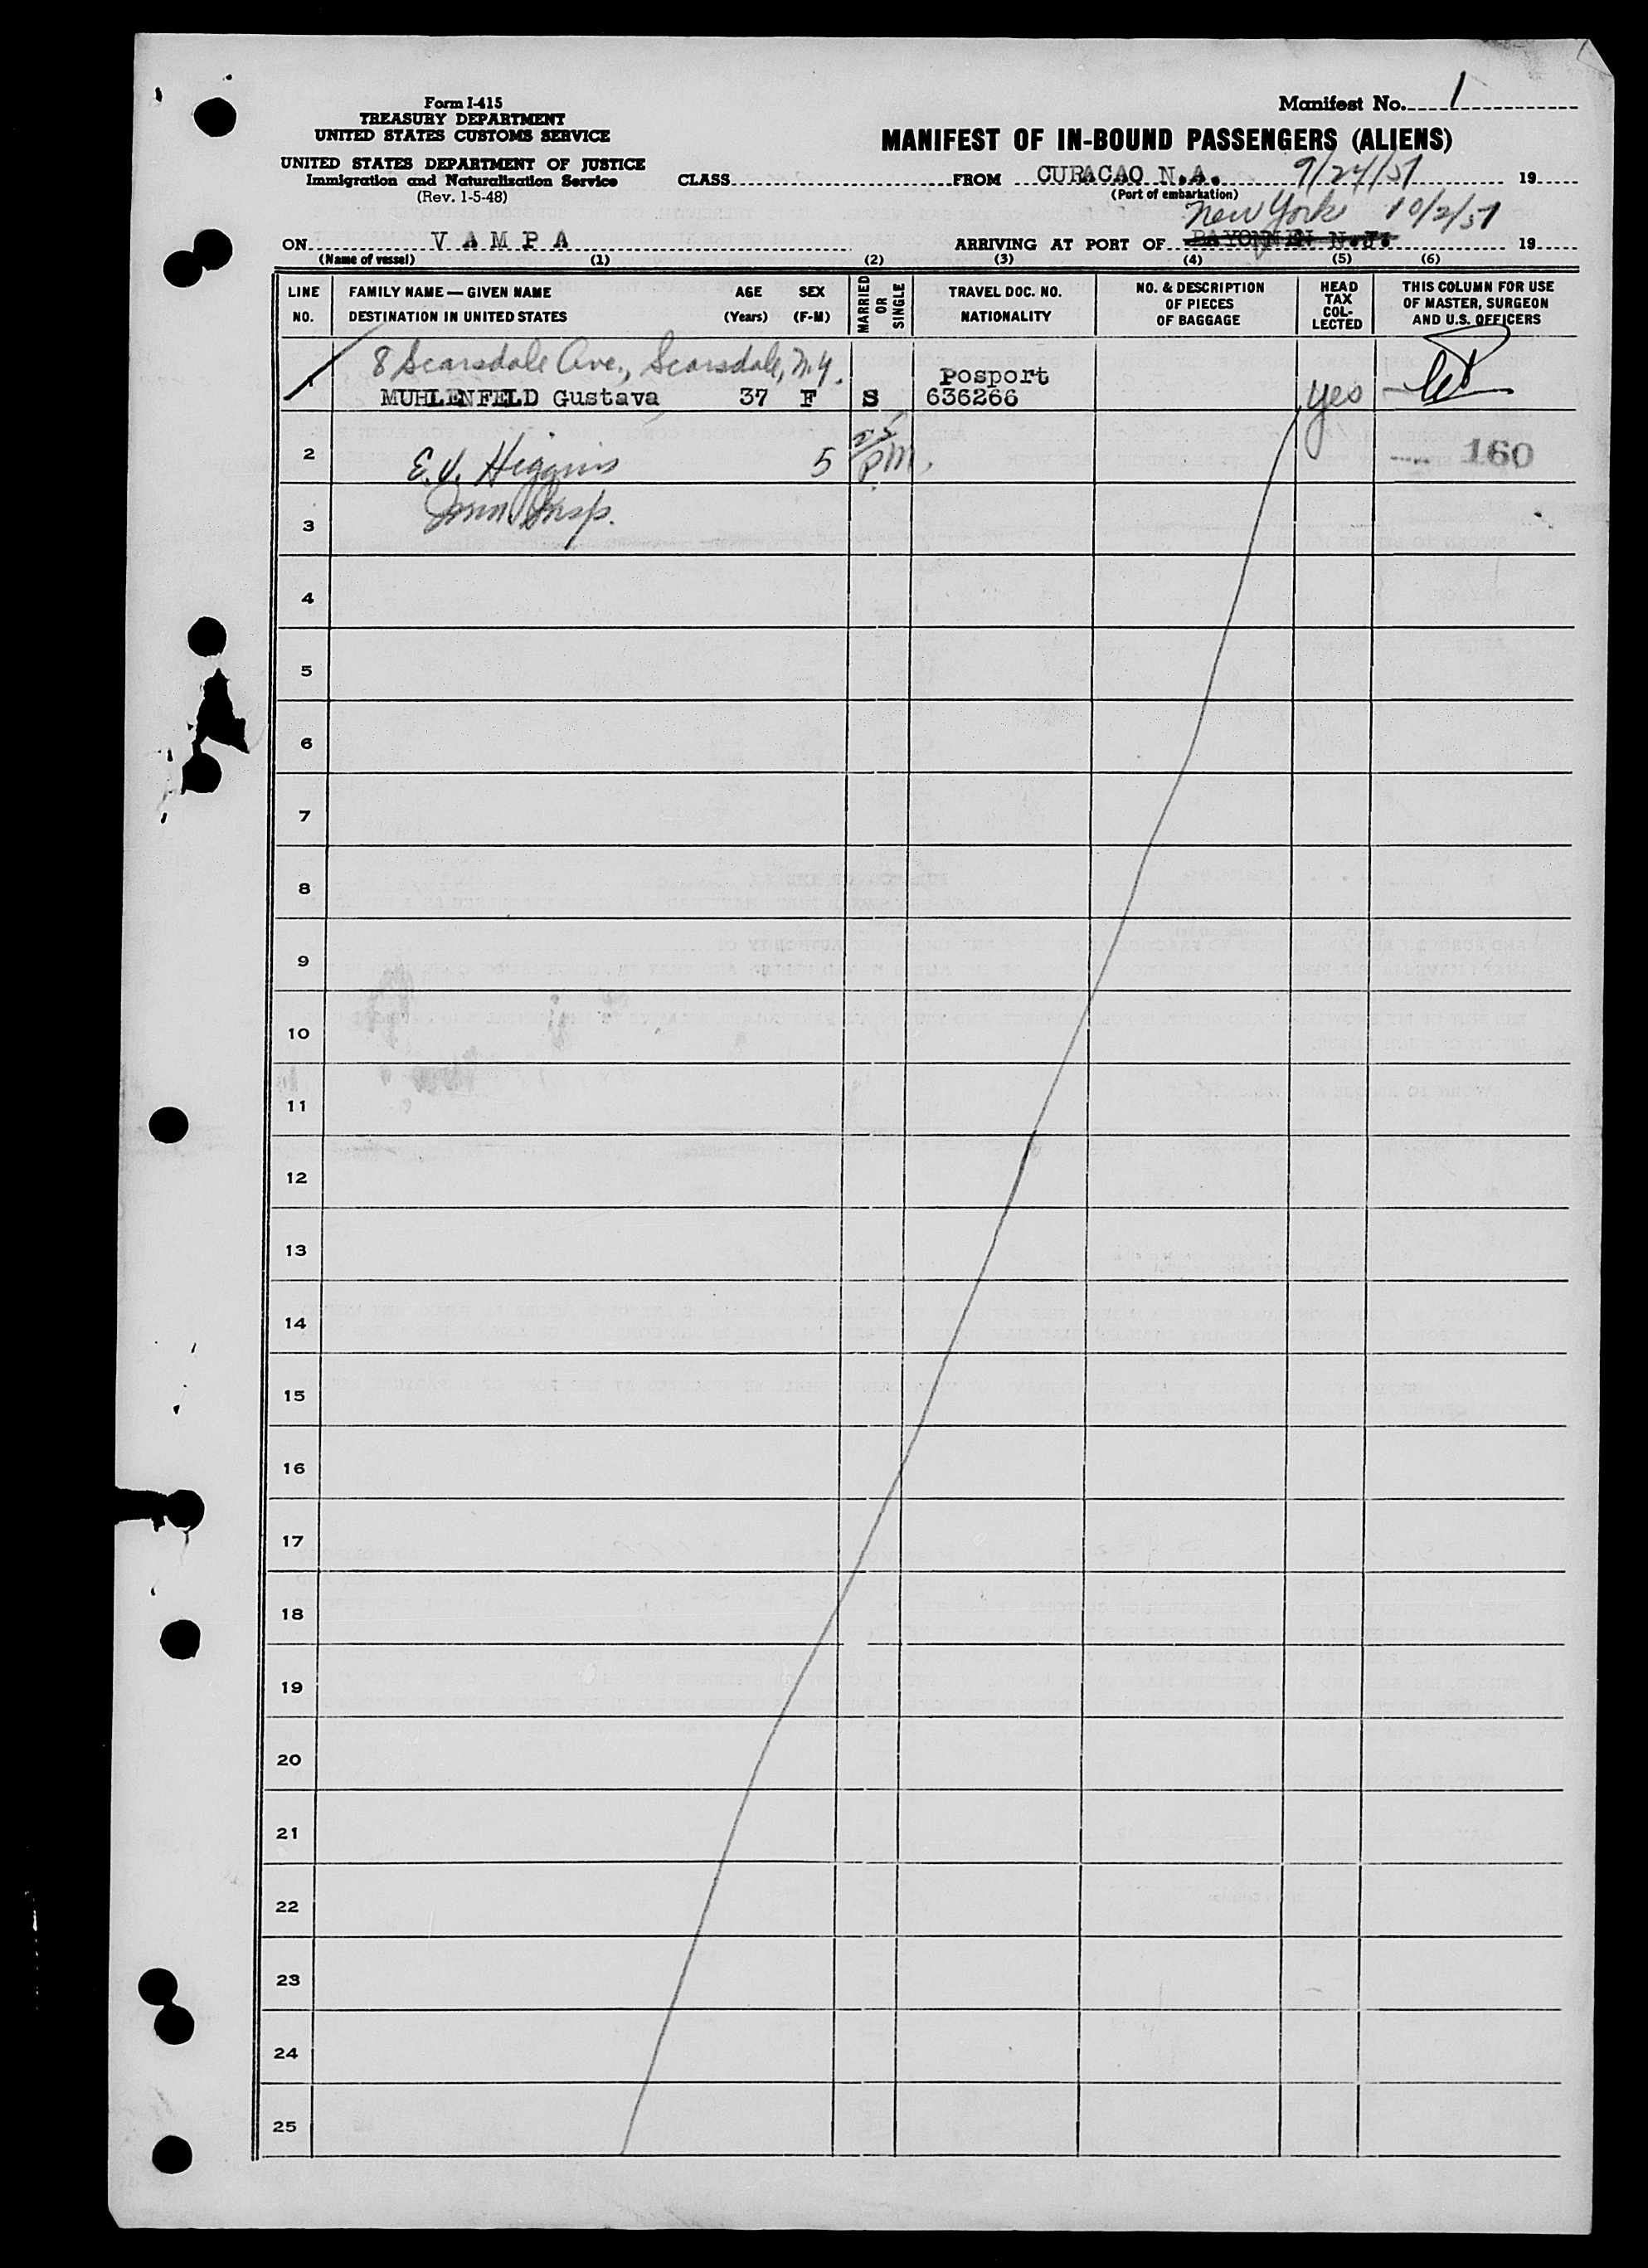 Form I-415
TREASURY DEPARTMENT
UNITED STATES CUSTOMS SERVICE
UNITED STATES DEPARTMENT OF JUSTICE
Immigration and Naturalization Service
(Rev. 1-5-48)
Manifest No. 1
MANIFEST OF IN-BOUND PASSENGERS (ALIENS)
CLASS FROM CURACAO N.A. 9/24/51 19
(Port of embarkation)
New York 10/2/51
ON V A M P A ARRIVING AT PORT OF BAYONNEN N.J. 19
(Name of vessel) (1) (2) (3) (4) (5) (6)
LINE NO.
FAMILY NAME — GIVEN NAME
DESTINATION IN UNITED STATES
AGE (Years)
SEX (F-M)
MARRIED OR SINGLE
TRAVEL DOC. NO.
NATIONALITY
NO. & DESCRIPTION OF PIECES OF BAGGAGE
HEAD TAX COL- LECTED
THIS COLUMN FOR USE OF MASTER, SURGEON AND U.S. OFFICERS
8 Scarsdale Ave., Scarsdale, N.Y.
1 MUHLENFELD Gustava 37 F S Posport 636266 yes
2 E.V. Higgins 5 25 PM. 160
3 Imm. Insp.
4
5
6
7
8
9
10
11
12
13
14
15
16
17
18
19
20
21
22
23
24
25